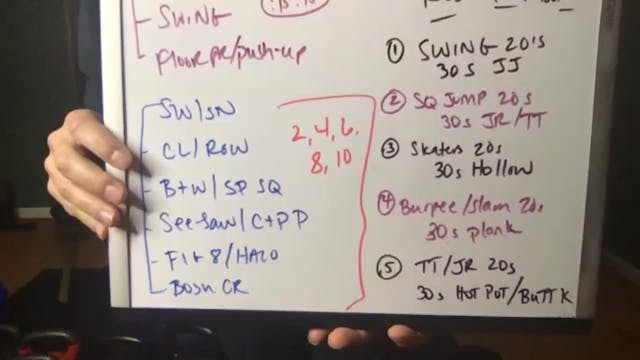 SWING
:15:10
FLOOR PR/PUSH-UP
SW/SN
CL/ROW
B+W/SP SQ
See-Saw/C+PP
FIG 8/HALO
BOSU CR
2, 4, 6,
8, 10
① SWING 20's
30s JJ
② SQ JUMP 20s
30s JR/TT
③ Skaters 20s
30s Hollow
④ Burpee/Slam 20s
30s plank
⑤ TT/JR 20s
30s HOT POT/BUTT K